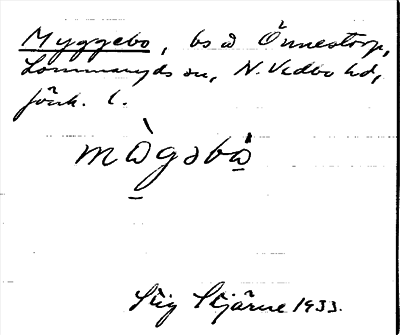 Myggebo, bs å Önnestorp,
Lommaryds sn, N. Vedbo hd,
Jönk. l.
mò̱gəbå̱̀
Stig Stjärne 1933.